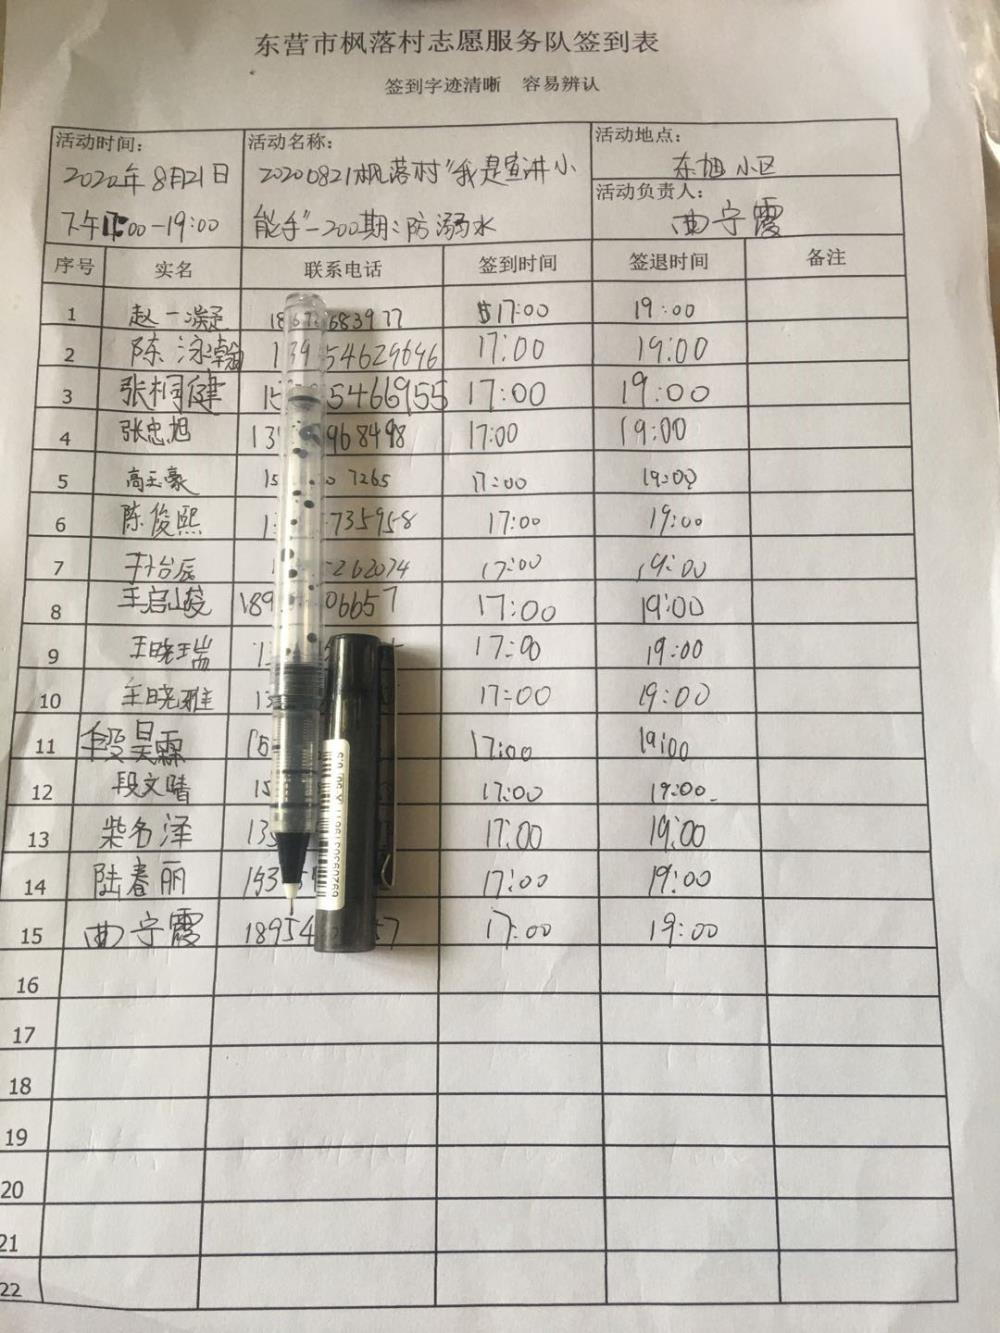 东营市枫落村志愿服务队签到表
签到字迹清晰 容易辨认
活动时间: 活动名称: 活动地点:
2020年8月21日 20200821枫落村"我是宣讲小 东旭小区
下午17:00-19:00 能手"-200期:防溺水 活动负责人:
曲宁霞
序号 实名 联系电话 签到时间 签退时间 备注
1 赵一凝 17:00 19:00
2 陈泳瀚 17:00 19:00
3 张桐健 5466955 17:00 19:00
4 张忠旭 968498 17:00 19:00
5 高玉豪 15 7265 17:00 19:00
6 陈俊熙 735958 17:00 19:00
7 262074 17:00 19:00
8 王启 189 06657 17:00 19:00
9 王晓瑞 17:00 19:00
10 王晓雅 17:00 19:00
11 段昊霖 17:00 19:00
12 段文晴 15 17:00 19:00
13 柴名泽 135 17:00 19:00
14 陆春丽 17:00 19:00
15 曲宁霞 18954 57 17:00 19:00
16
17
18
19
20
21
22